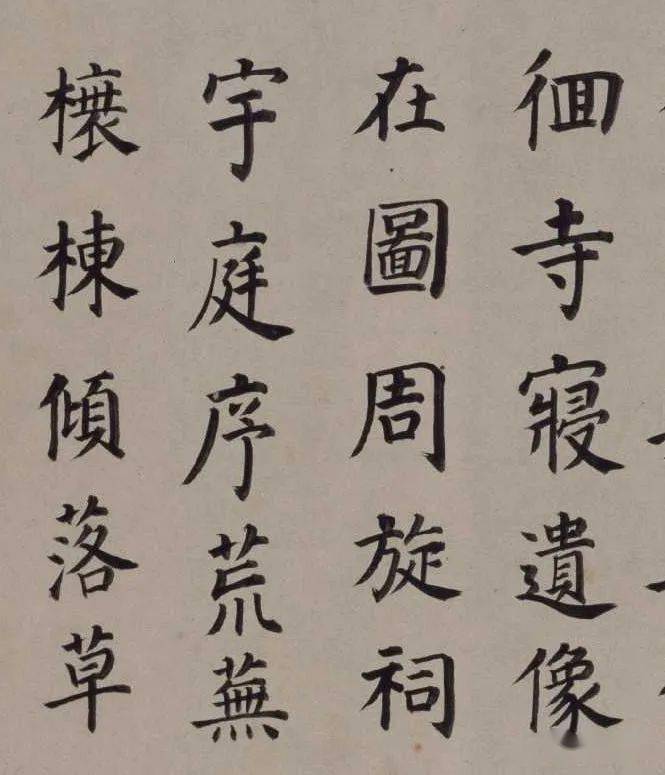 徊寺寢遺像
在圖周旋祠
宇庭序荒蕪
榱棟傾落草